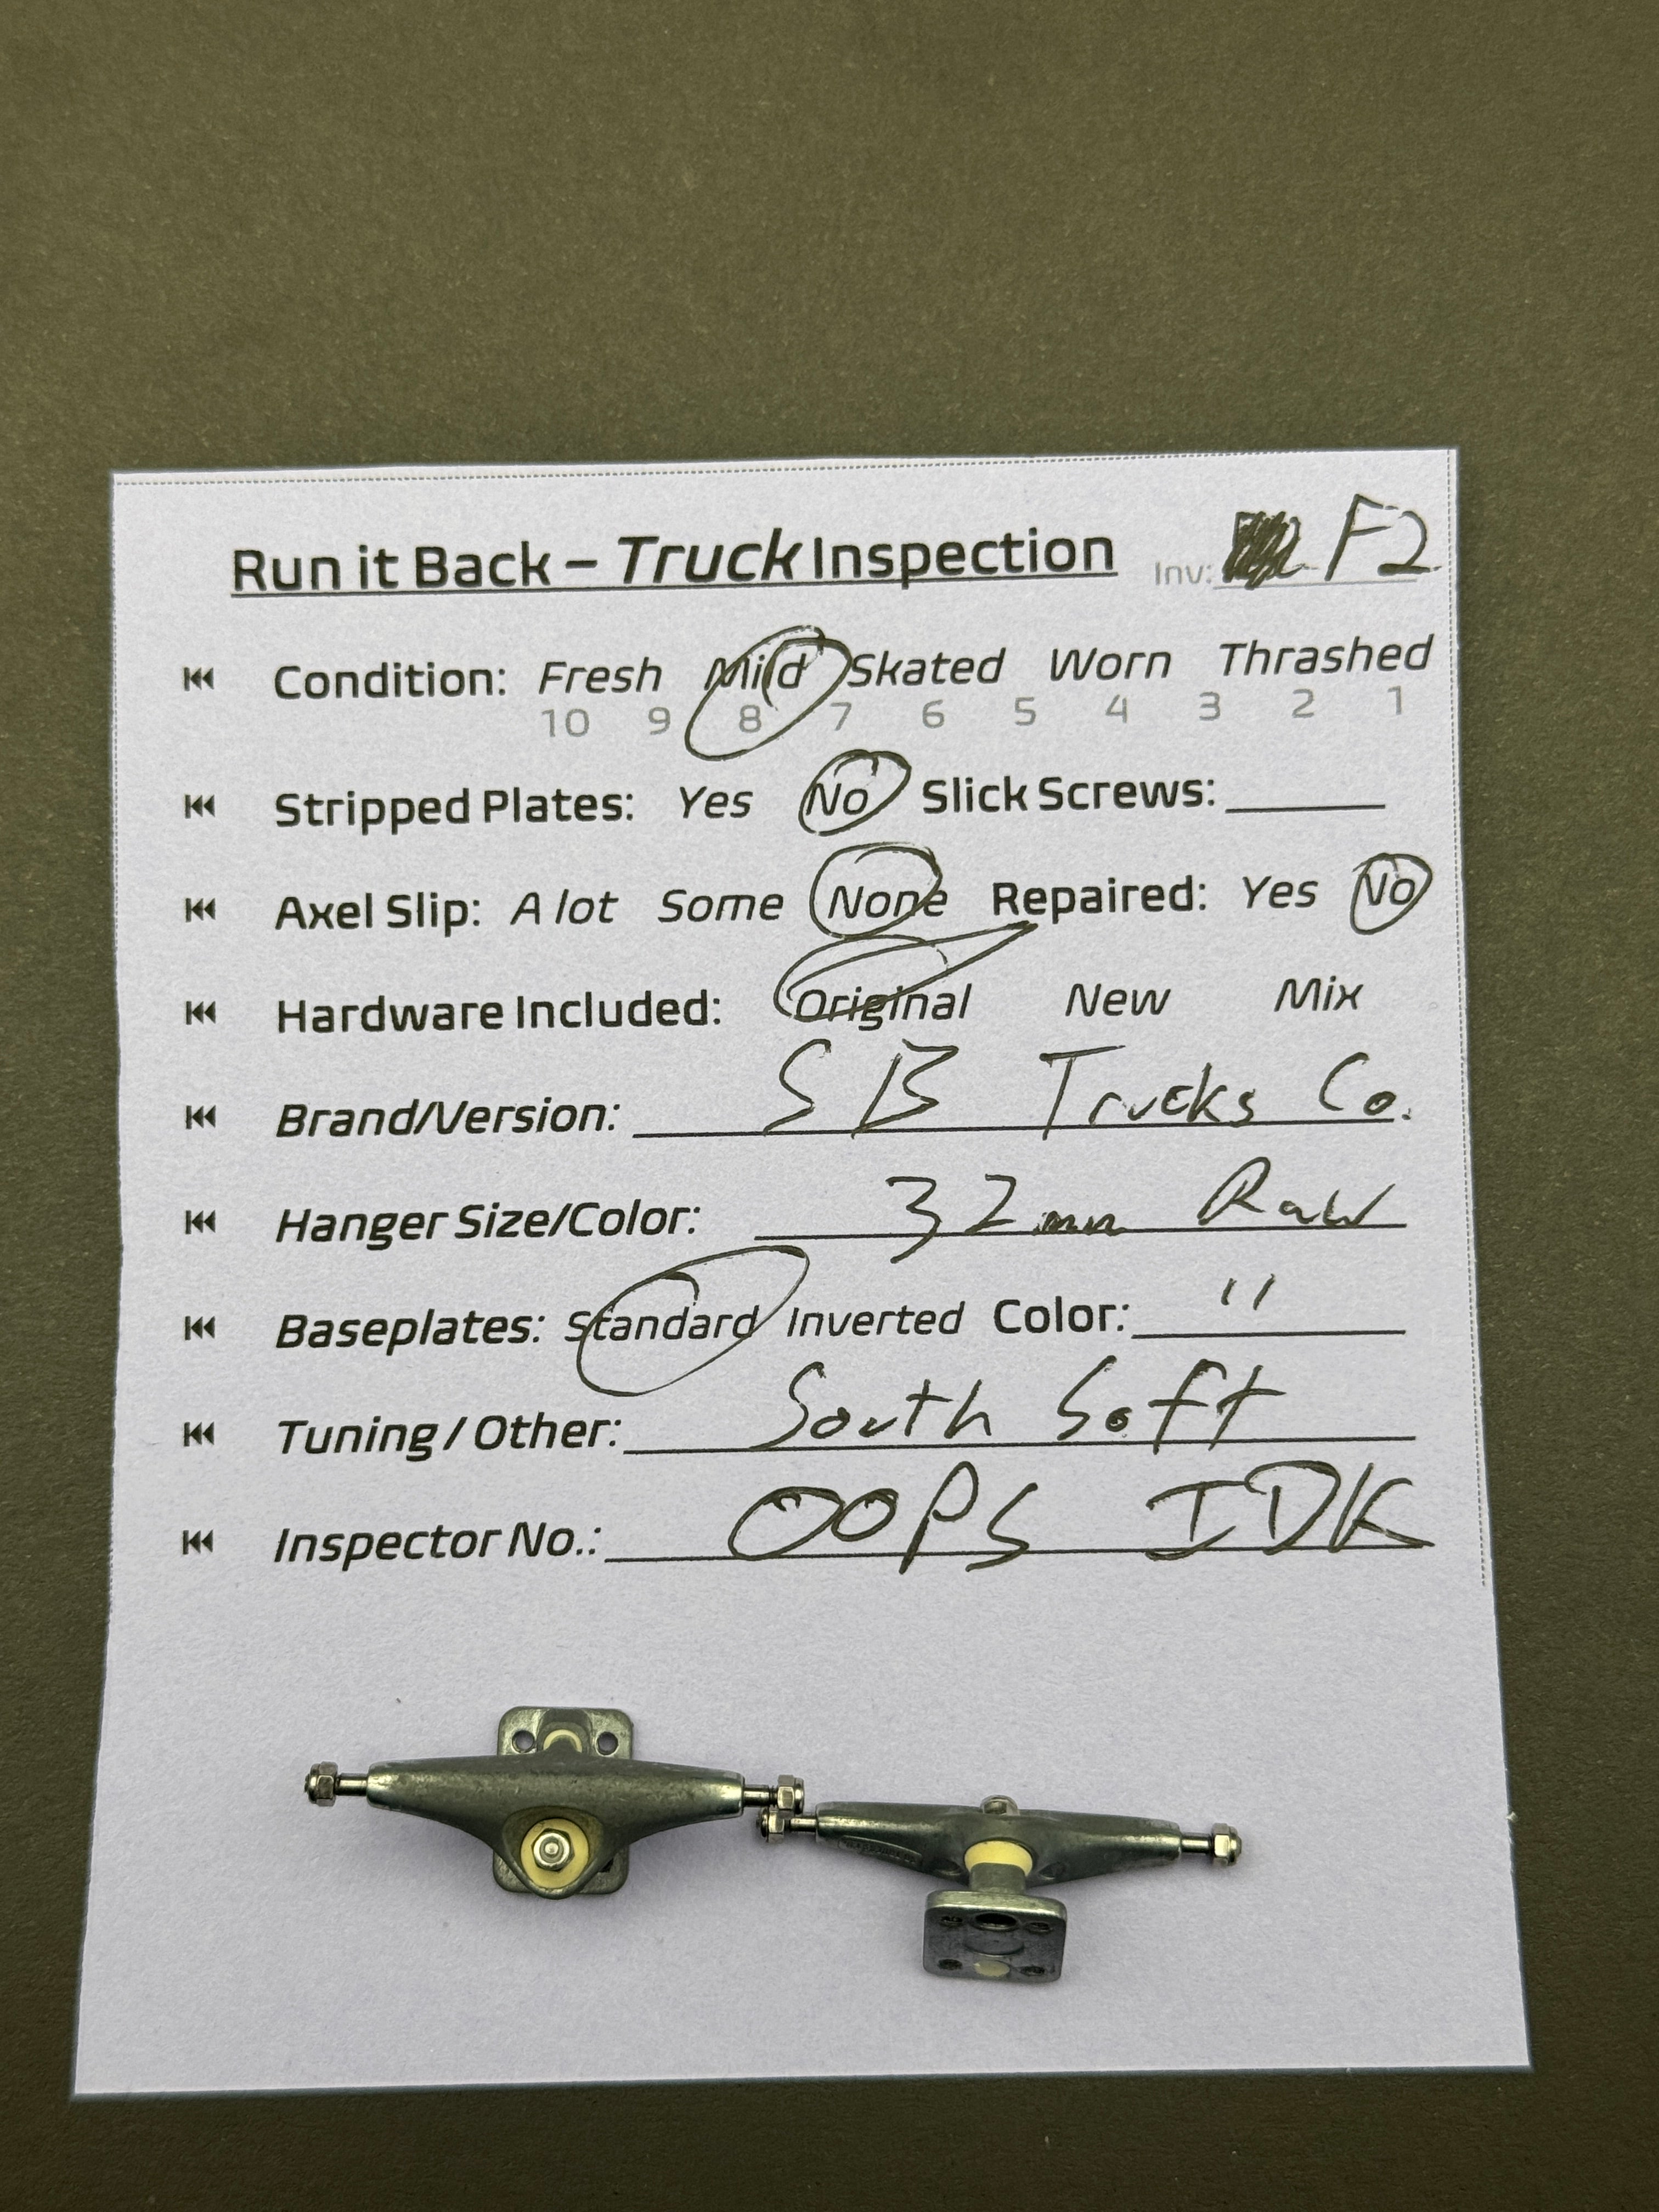 Run it Back – Truck Inspection Inv: F2
Condition: Fresh Mild Skated Worn Thrashed
10 9 8 7 6 5 4 3 2 1
Stripped Plates: Yes No Slick Screws:
Axel Slip: A lot Some None Repaired: Yes No
Hardware Included: Original New Mix
Brand/Version: SB Trucks Co.
Hanger Size/Color: 32mm Raw
Baseplates: Standard Inverted Color: "
Tuning / Other: South Soft
Inspector No.: OOPS IDK